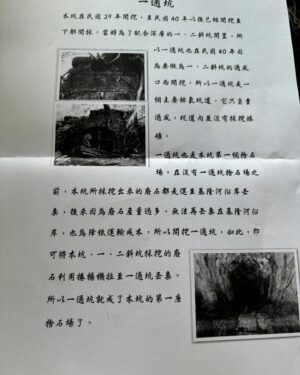 一通坑
本坑在民國29年開挖,直至民國40年以後已經開挖至
下部開採,當時為了配合深層的一、二斜坑開鑿,所
以一通坑也在民國40年因
為要做為一、二斜坑的通風
口而開挖,所以一通坑是一
個主要排氣坑道,它只負責
通風,坑道內並沒有採挖煤
礦。
一通坑也是本坑第一個捨石
場,在沒有一通坑捨石場之
前,本坑所採挖出來的廢石都是運至基隆河沿岸丟
棄,後來因為廢石產量過多,無法再丟棄在基隆河沿
岸,也為降低運輸成本,所以開挖一通坑,如此,即
可將本坑、一、二斜坑採挖的廢
石利用捲揚機拉至一通坑丟棄。
所以一通坑就成了本坑的第一座
捨石場了。